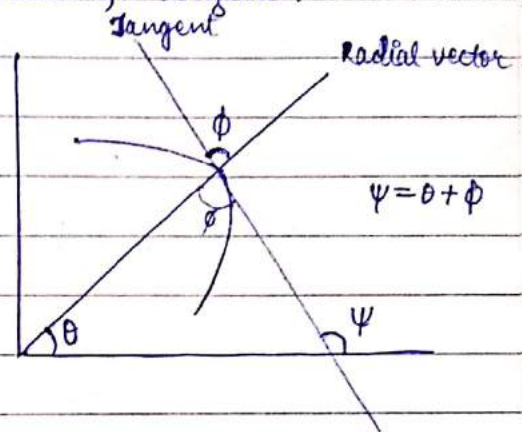 Tangent
Radial vector
ϕ
ψ = θ + ϕ
ϕ
θ
ψ